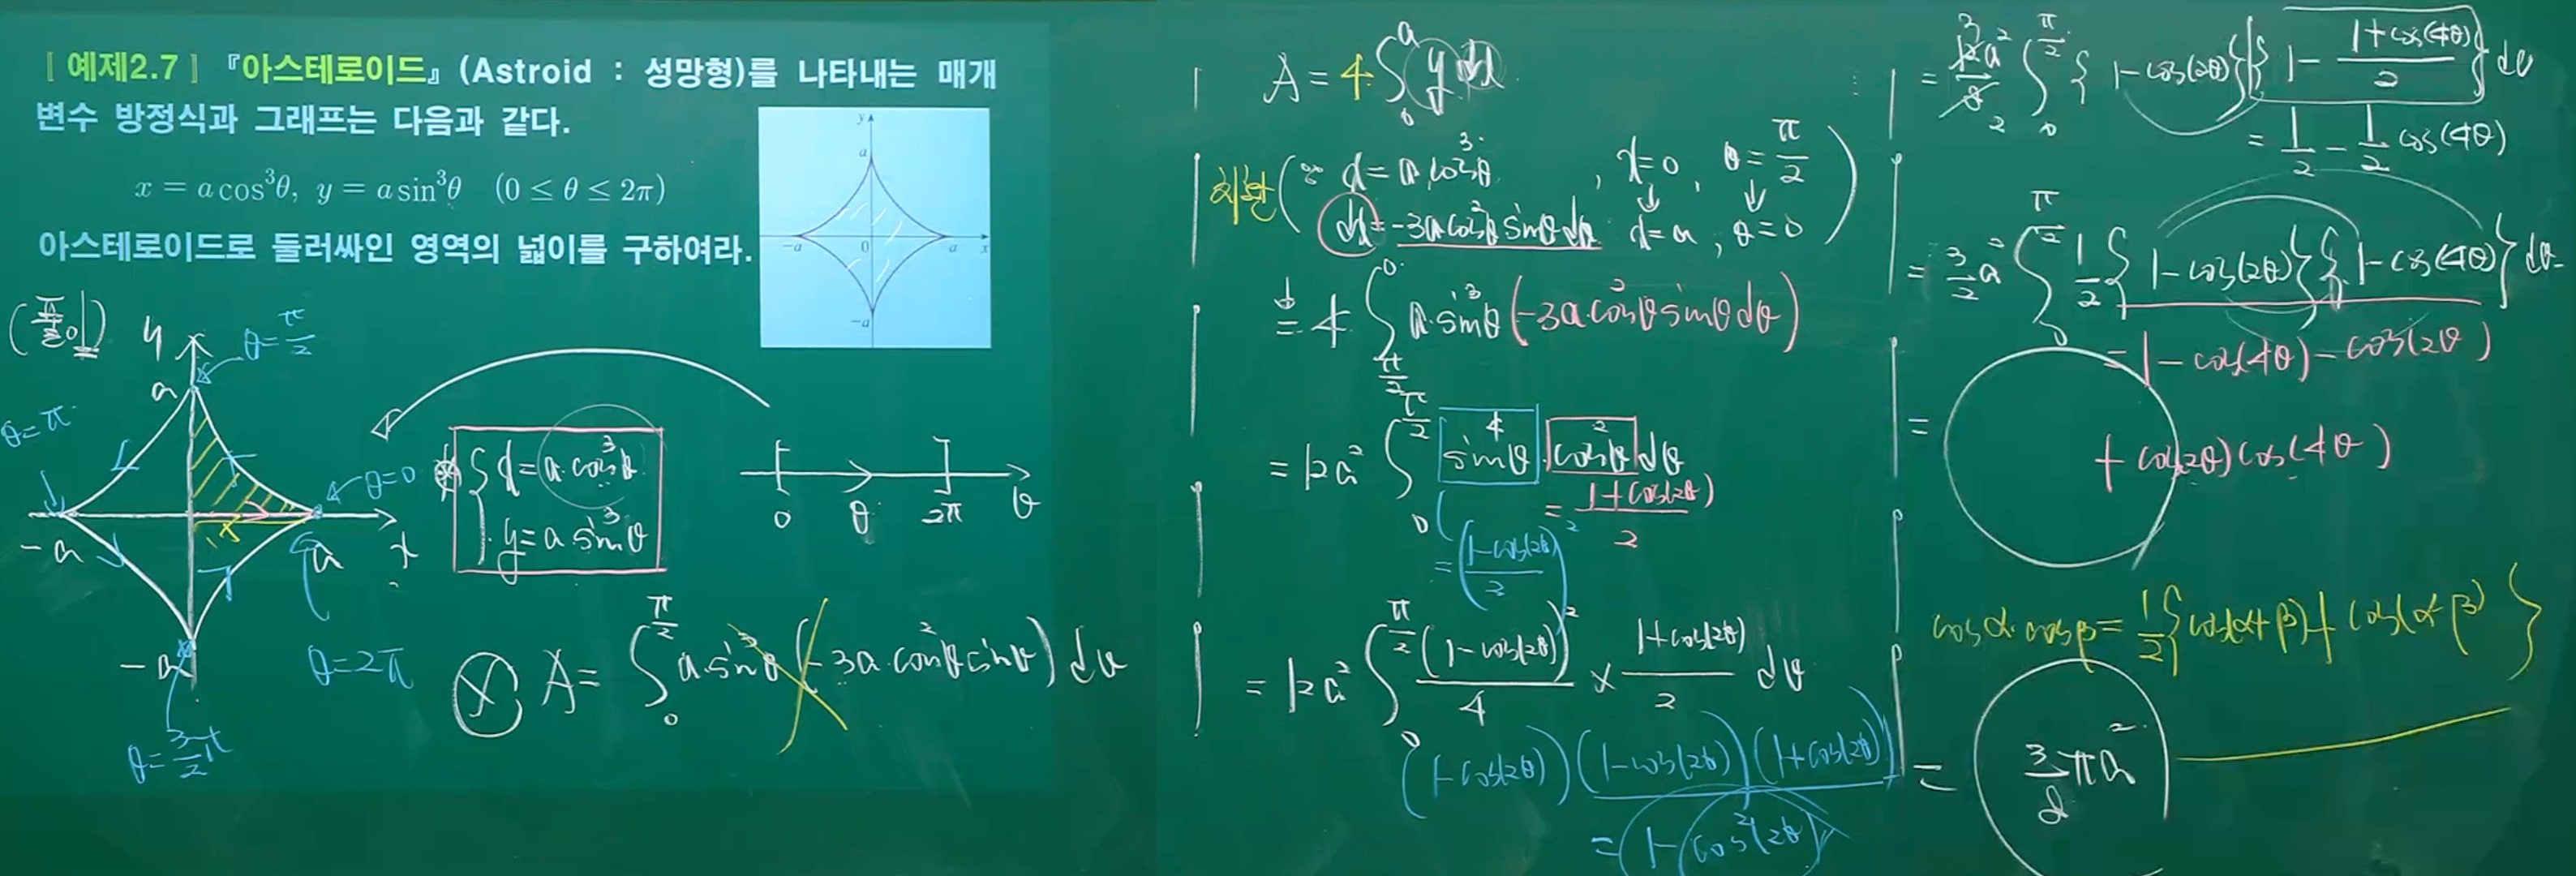 [ 예제2.7 ] 『아스테로이드』 (Astroid : 성망형)를 나타내는 매개
변수 방정식과 그래프는 다음과 같다.
x = a cos³θ, y = a sin³θ (0 ≤ θ ≤ 2π)
아스테로이드로 둘러싸인 영역의 넓이를 구하여라.
y
a
-a 0 a x
-a
(풀이)
y
θ = π/2
a
θ = π
θ = 0
-a a x
-a
θ = 2π
θ = 3/2 π
※ { x = a cos³θ
y = a sin³θ
0 θ 2π θ
Ⓧ A = ∫₀^(π/2) a sin³θ (-3a cos²θ sinθ) dθ
A = 4 ∫₀^a y dx
치환 ( ∵ x = a cos³θ , x = 0 , θ = π/2
dx = -3a cos²θ sinθ dθ x = a , θ = 0 )
= 4 ∫_(π/2)^0 a sin³θ (-3a cos²θ sinθ dθ)
= 12a² ∫₀^(π/2) sin⁴θ cos²θ dθ
= (1+cos(2θ))/2
= ((1-cos(2θ))/2)²
= 12a² ∫₀^(π/2) (1-cos(2θ))²/4 × (1+cos(2θ))/2 dθ
(1-cos(2θ)) (1-cos(2θ)) (1+cos(2θ))
= 1-cos²(2θ)
= 12a²/8 ∫₀^(π/2) { 1-cos(2θ) } { 1 - (1+cos(4θ))/2 } dθ
3
2
= 1/2 - 1/2 cos(4θ)
= 3/2 a² ∫₀^(π/2) 1/2 { 1-cos(2θ) } { 1-cos(4θ) } dθ
= 1 - cos(4θ) - cos(2θ)
=
+ cos(2θ) cos(4θ)
cosα·cosβ = 1/2 { cos(α+β) + cos(α-β) }
= 3/8 πa²